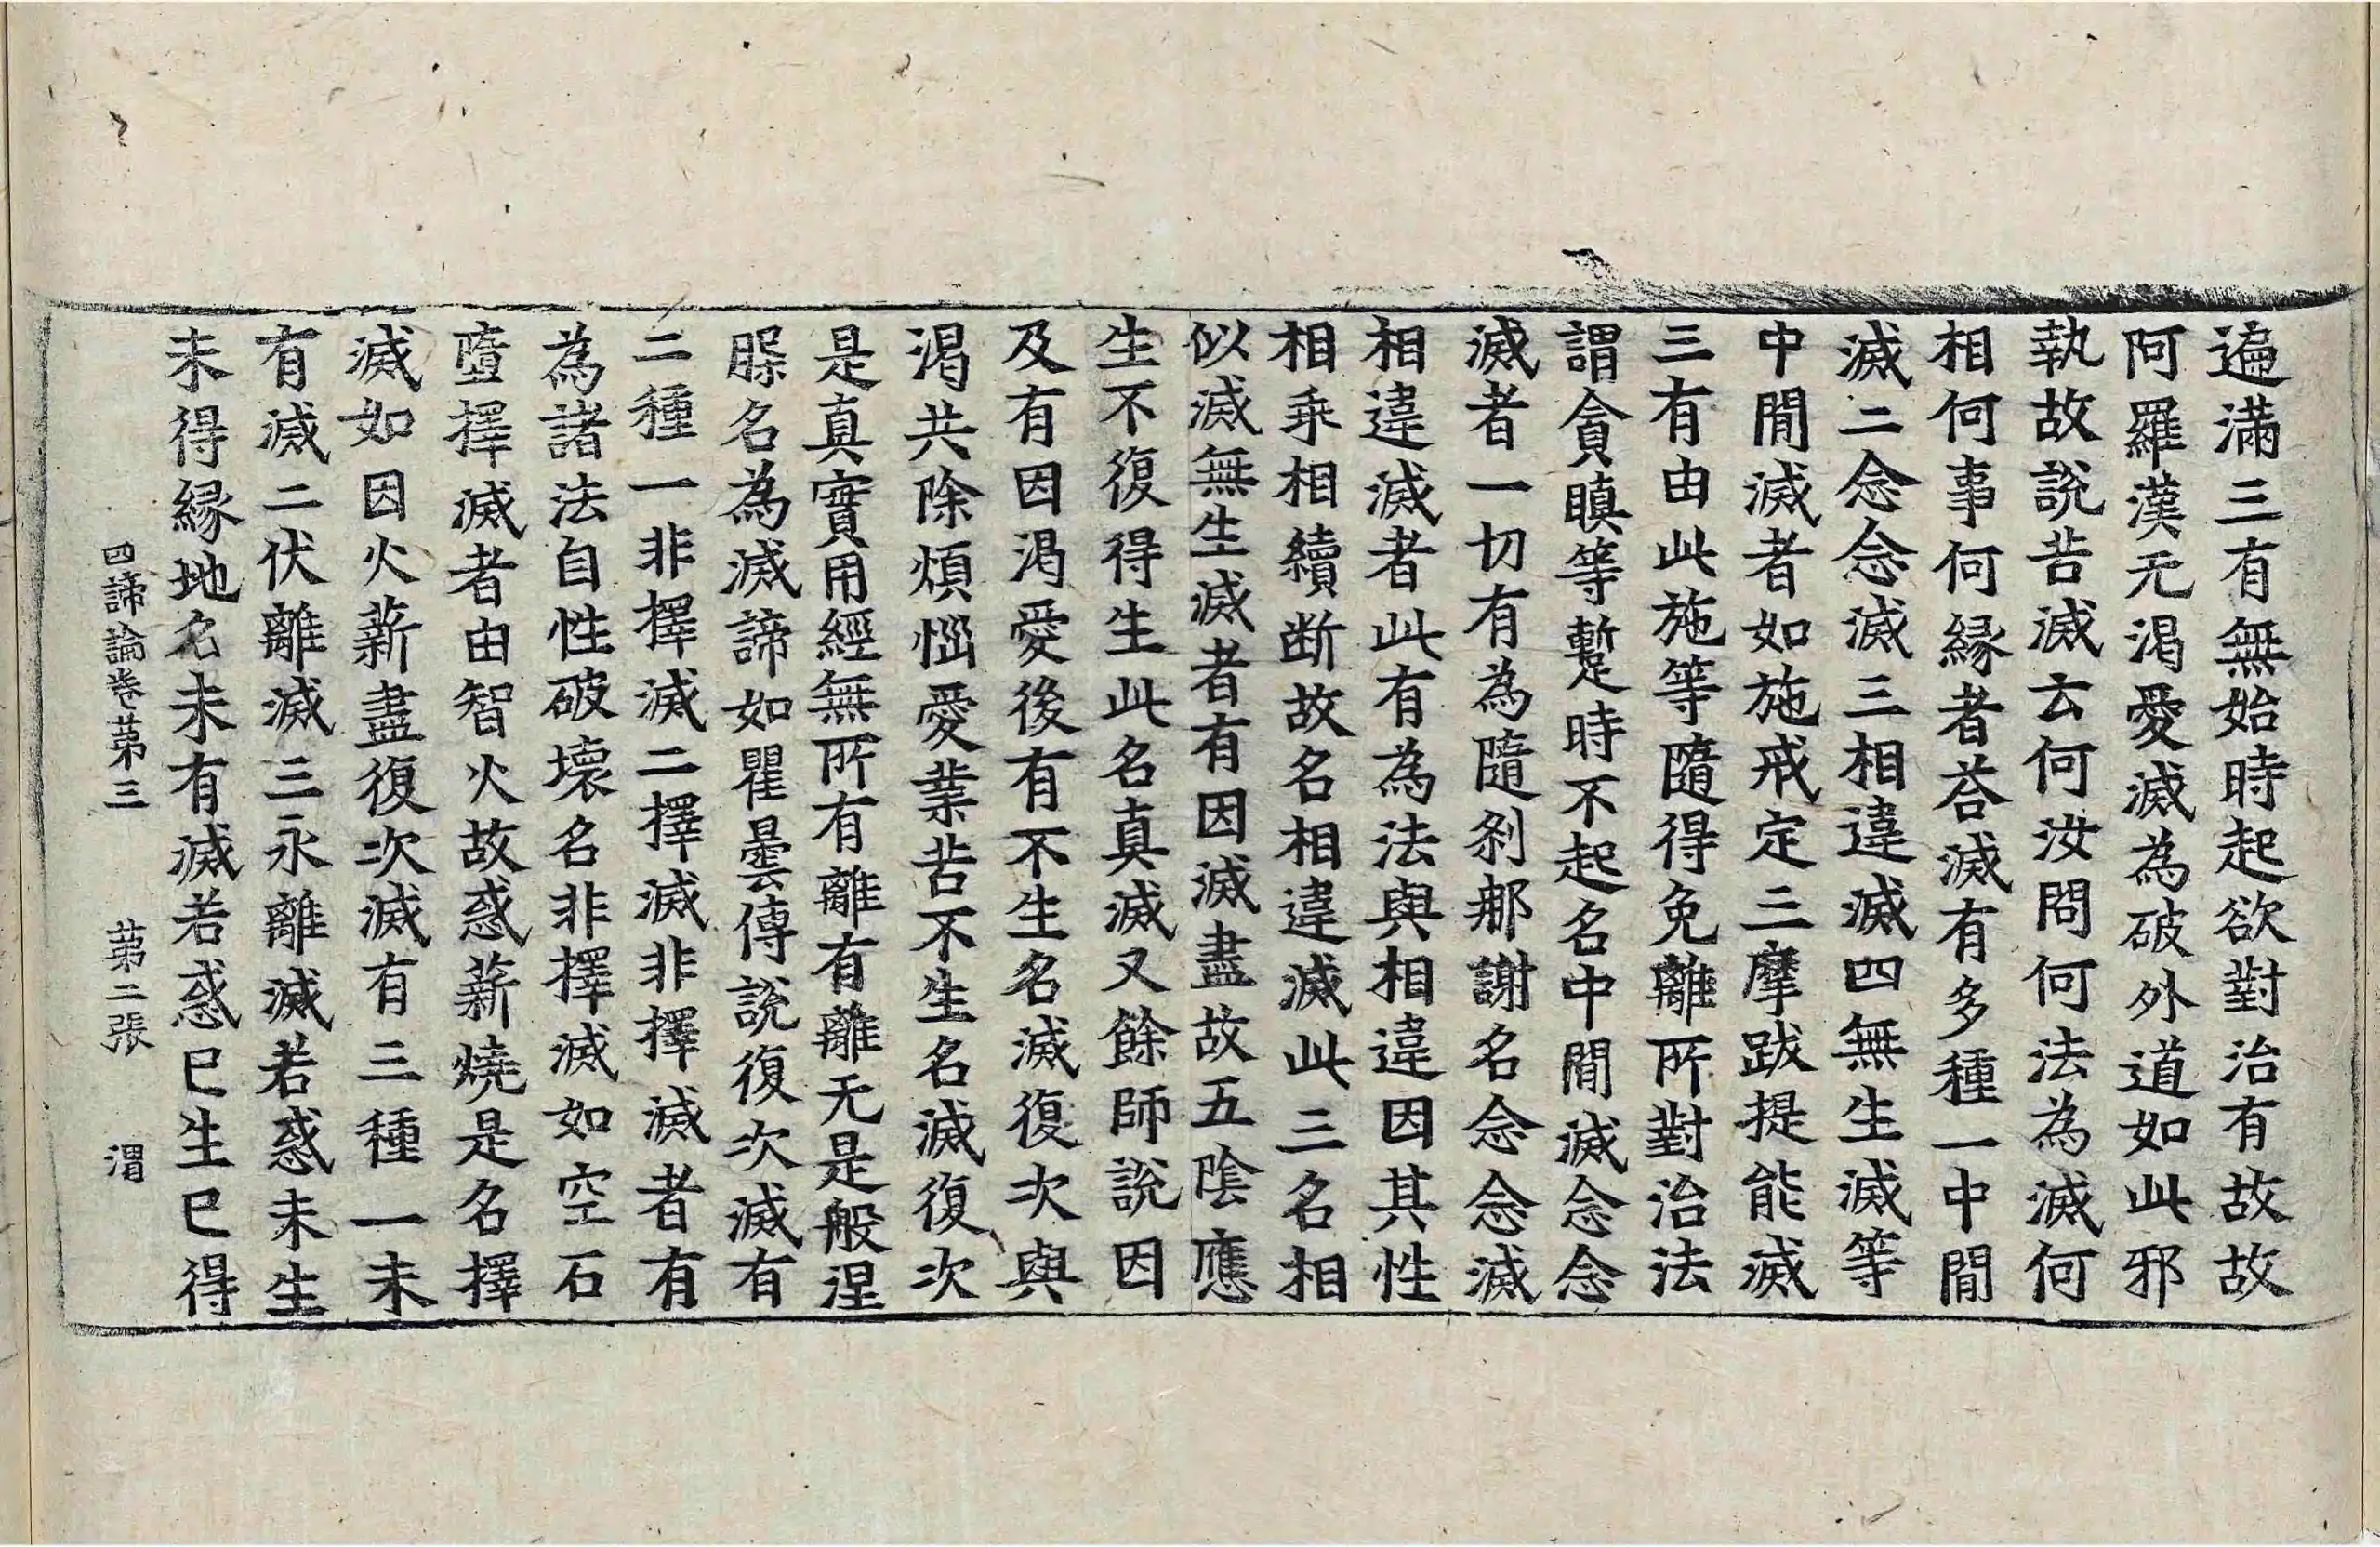 遍滿三有無始時起欲對治有故故
阿羅漢无渴愛滅為破外道如此邪
執故說苦滅云何汝問何法為滅何
相何事何縁者荅滅有多種一中間
滅二念念滅三相違滅四無生滅等
中間滅者如施戒定三摩跋提能滅
三有由此施等隨得免離所對治法
謂貪瞋等蹔時不起名中間滅念念
滅者一切有為隨剎那謝名念念滅
相違滅者此有為法與相違因其性
相乖相續断故名相違滅此三名相
似滅無生滅者有因滅盡故五陰應
生不復得生此名真滅又餘師說因
及有因渴愛後有不生名滅復次與
渴共除煩惱愛業苦不生名滅復次
是真實用經無所有離有離无是般涅
槃名為滅諦如瞿曇傳說復次滅有
二種一非擇滅二擇滅非擇滅者有
為諸法自性破壞名非擇滅如空石
墮擇滅者由智火故惑薪燒是名擇
滅如因火薪盡復次滅有三種一未
有滅二伏離滅三永離滅若惑未生
未得縁地名未有滅若惑已生已得
四諦論卷苐三 苐二張 渭